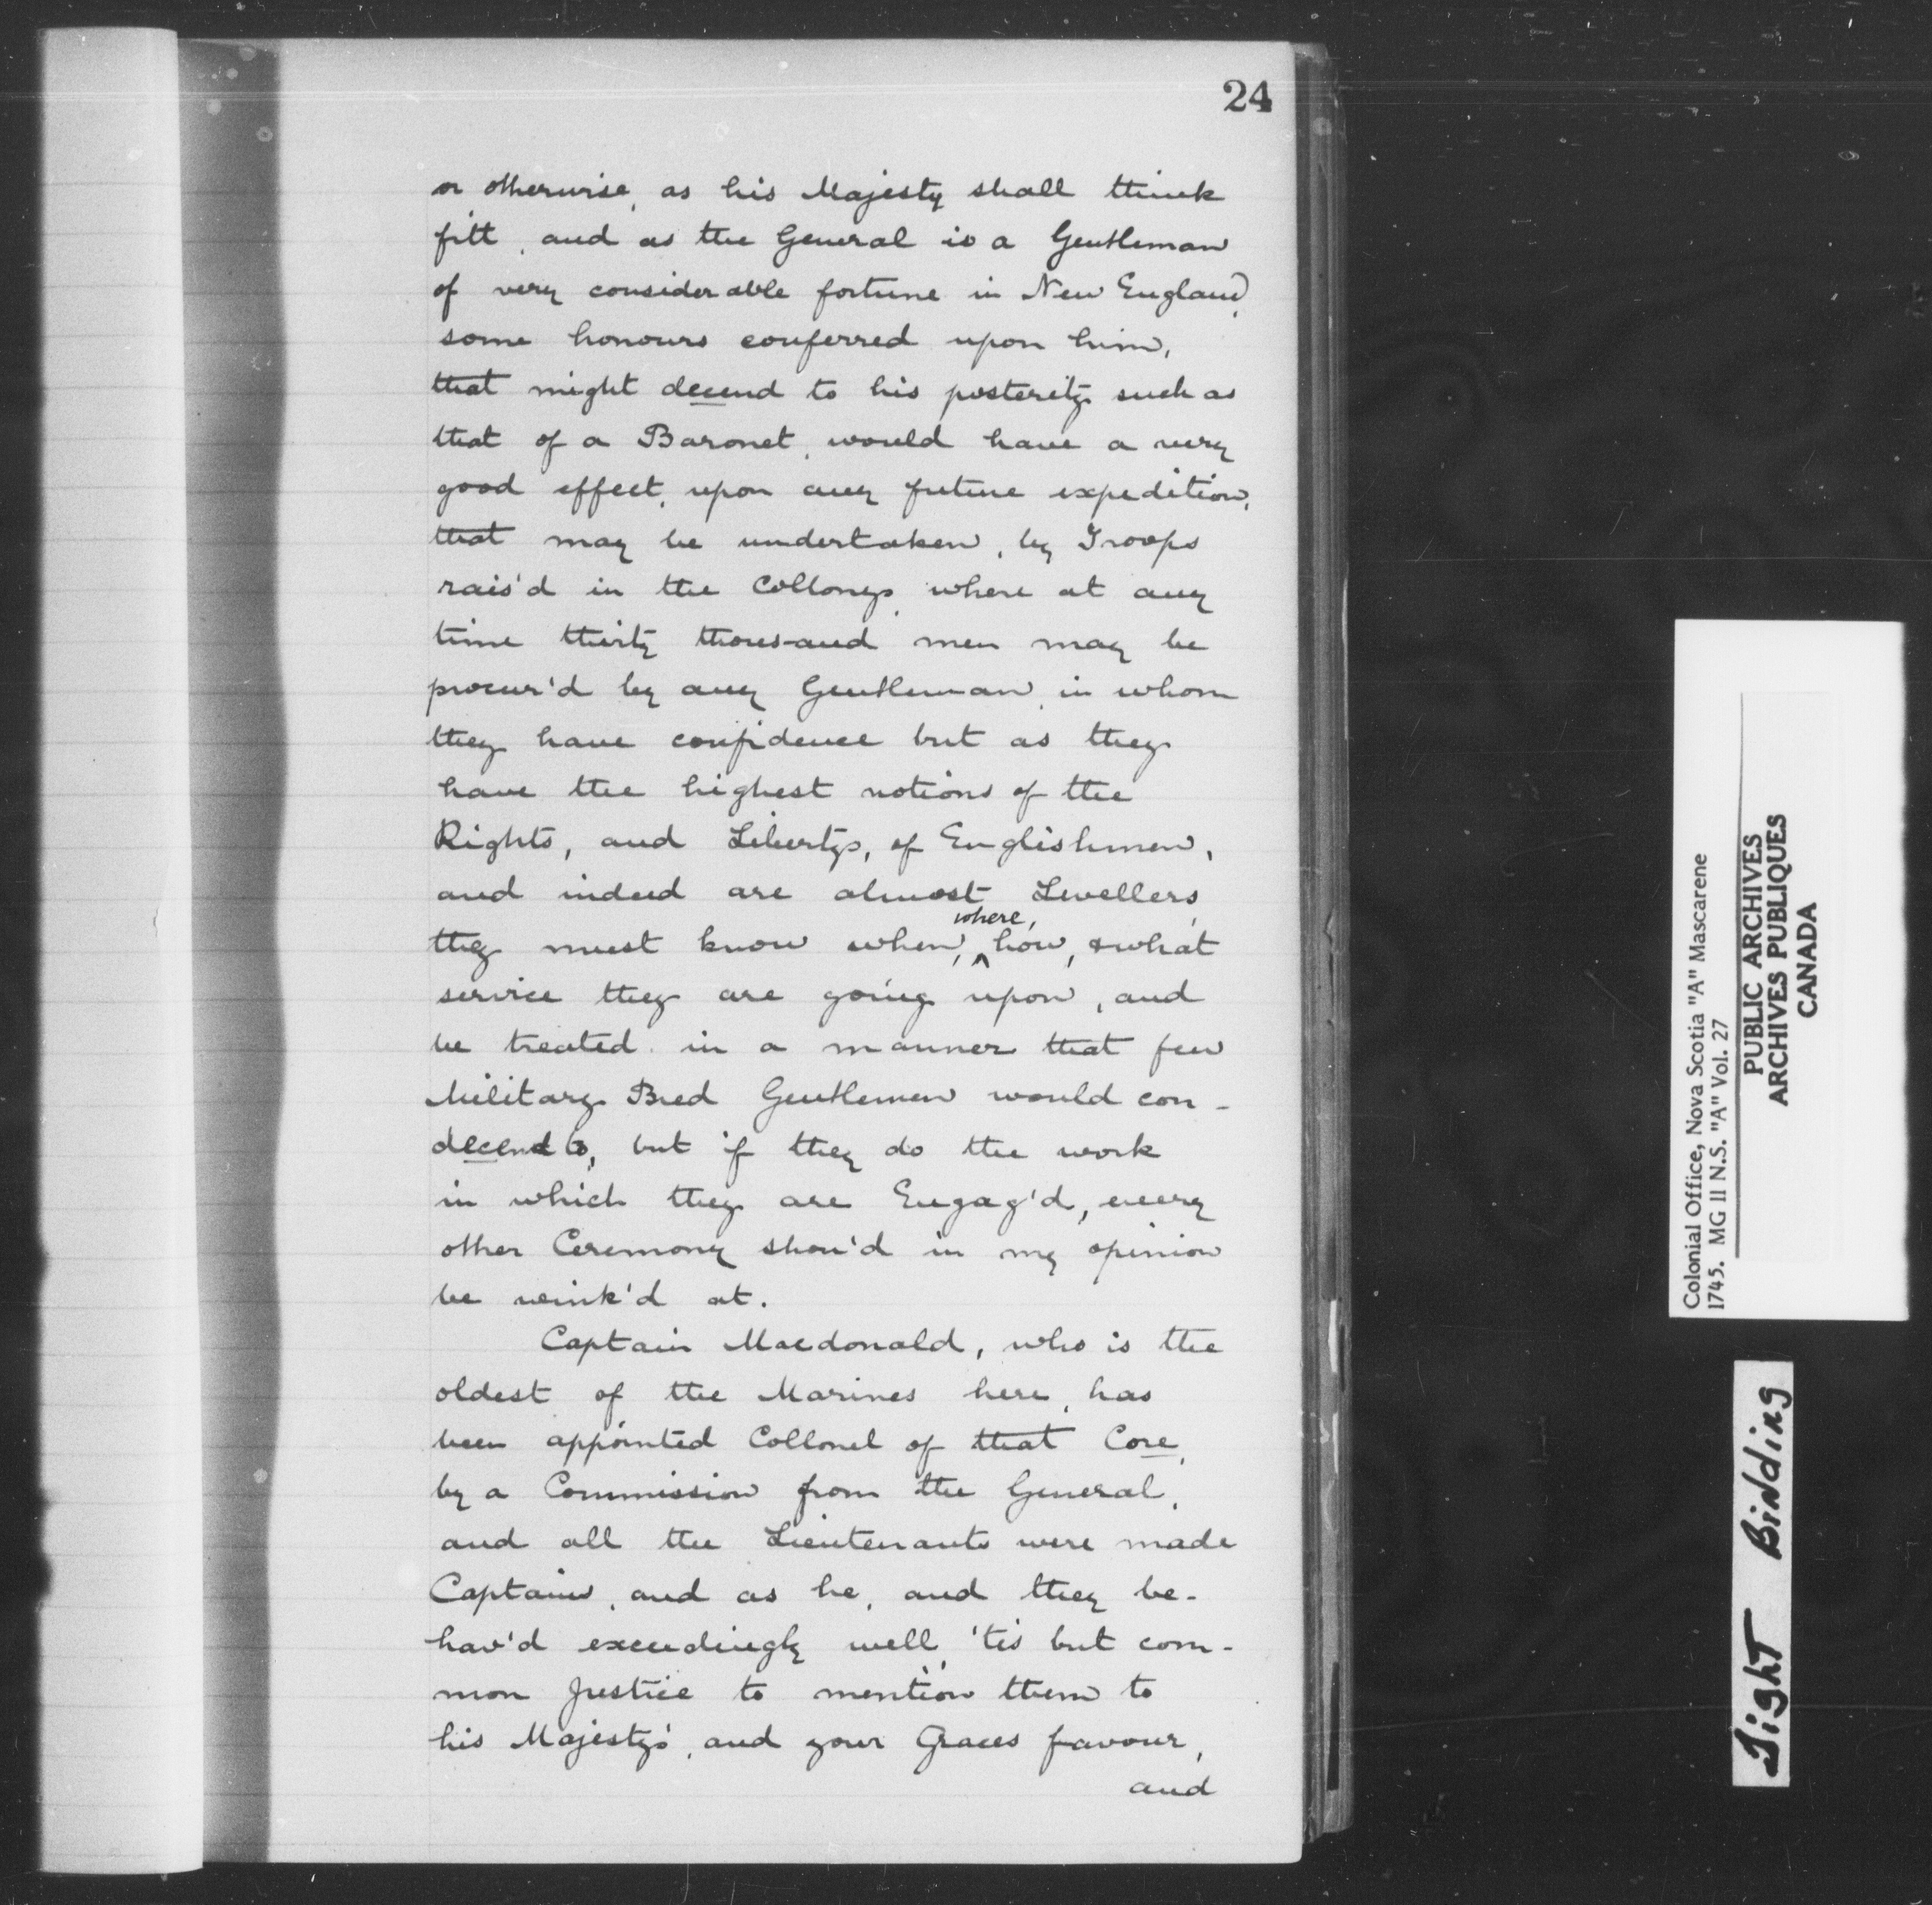 24
or otherwise, as his Majesty shall think
fitt, and as the General is a Gentleman
of very considerable fortune in New England,
some honours conferred upon him,
that might decend to his posterity such as
that of a Baronet, would have a very
good effect, upon any future expedition,
that may be undertaken, by Troops
rais'd in the Collonys, where at any
time thirty thousand men may be
procur'd by any Gentleman, in whom
they have confidence but as they
have the highest notions of the
Rights, and Libertys, of Englishmen,
and indeed are almost Levellers,
they must know when, where, how, & what
service they are going upon, and
be treated in a manner that few
Military Bred Gentlemen would con-
decend to, but if they do the work
in which they are Engag'd, every
other Ceremony shou'd in my opinion
be wink'd at.
Captain Macdonald, who is the
oldest of the Marines here, has
been appointed Collonel of that Core,
by a Commission from the General,
and all the Lieutenants were made
Captains, and as he, and they be-
hav'd exceedingly well, 'tis but com-
mon Justice to mention them to
his Majesty's, and your Graces favour,
and
Colonial Office, Nova Scotia "A" Mascarene
1745. MG 11 N.S. "A" Vol. 27
PUBLIC ARCHIVES
ARCHIVES PUBLIQUES
CANADA
Tight Binding